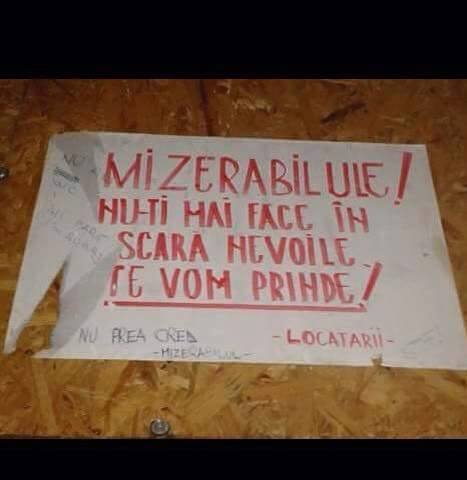 MIZERABILULE!
NU-TI MAI FACE ÎN
SCARĂ NEVOILE
TE VOM PRINDE!
-LOCATARII-
NU PREA CRED
-MIZERABILUL-
NU
WC
PARE